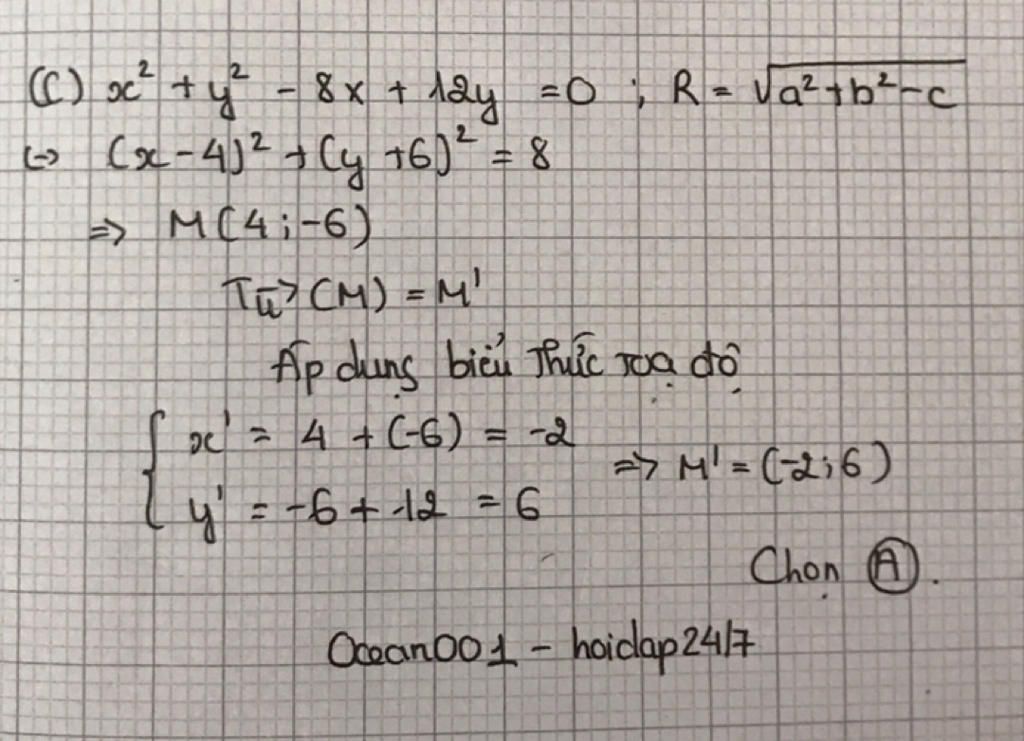 (C) x² + y² - 8x + 12y = 0 ; R = √a²+b²-c
(-> (x-4)² + (y+6)² = 8
=> M(4;-6)
Tū>(M) = M'
Áp dụng biểu thức toạ độ
x' = 4 + (-6) = -2
=> M' = (-2;6)
y' = -6 + 12 = 6
Chọn A.
Ocean001 - hoidap24/7